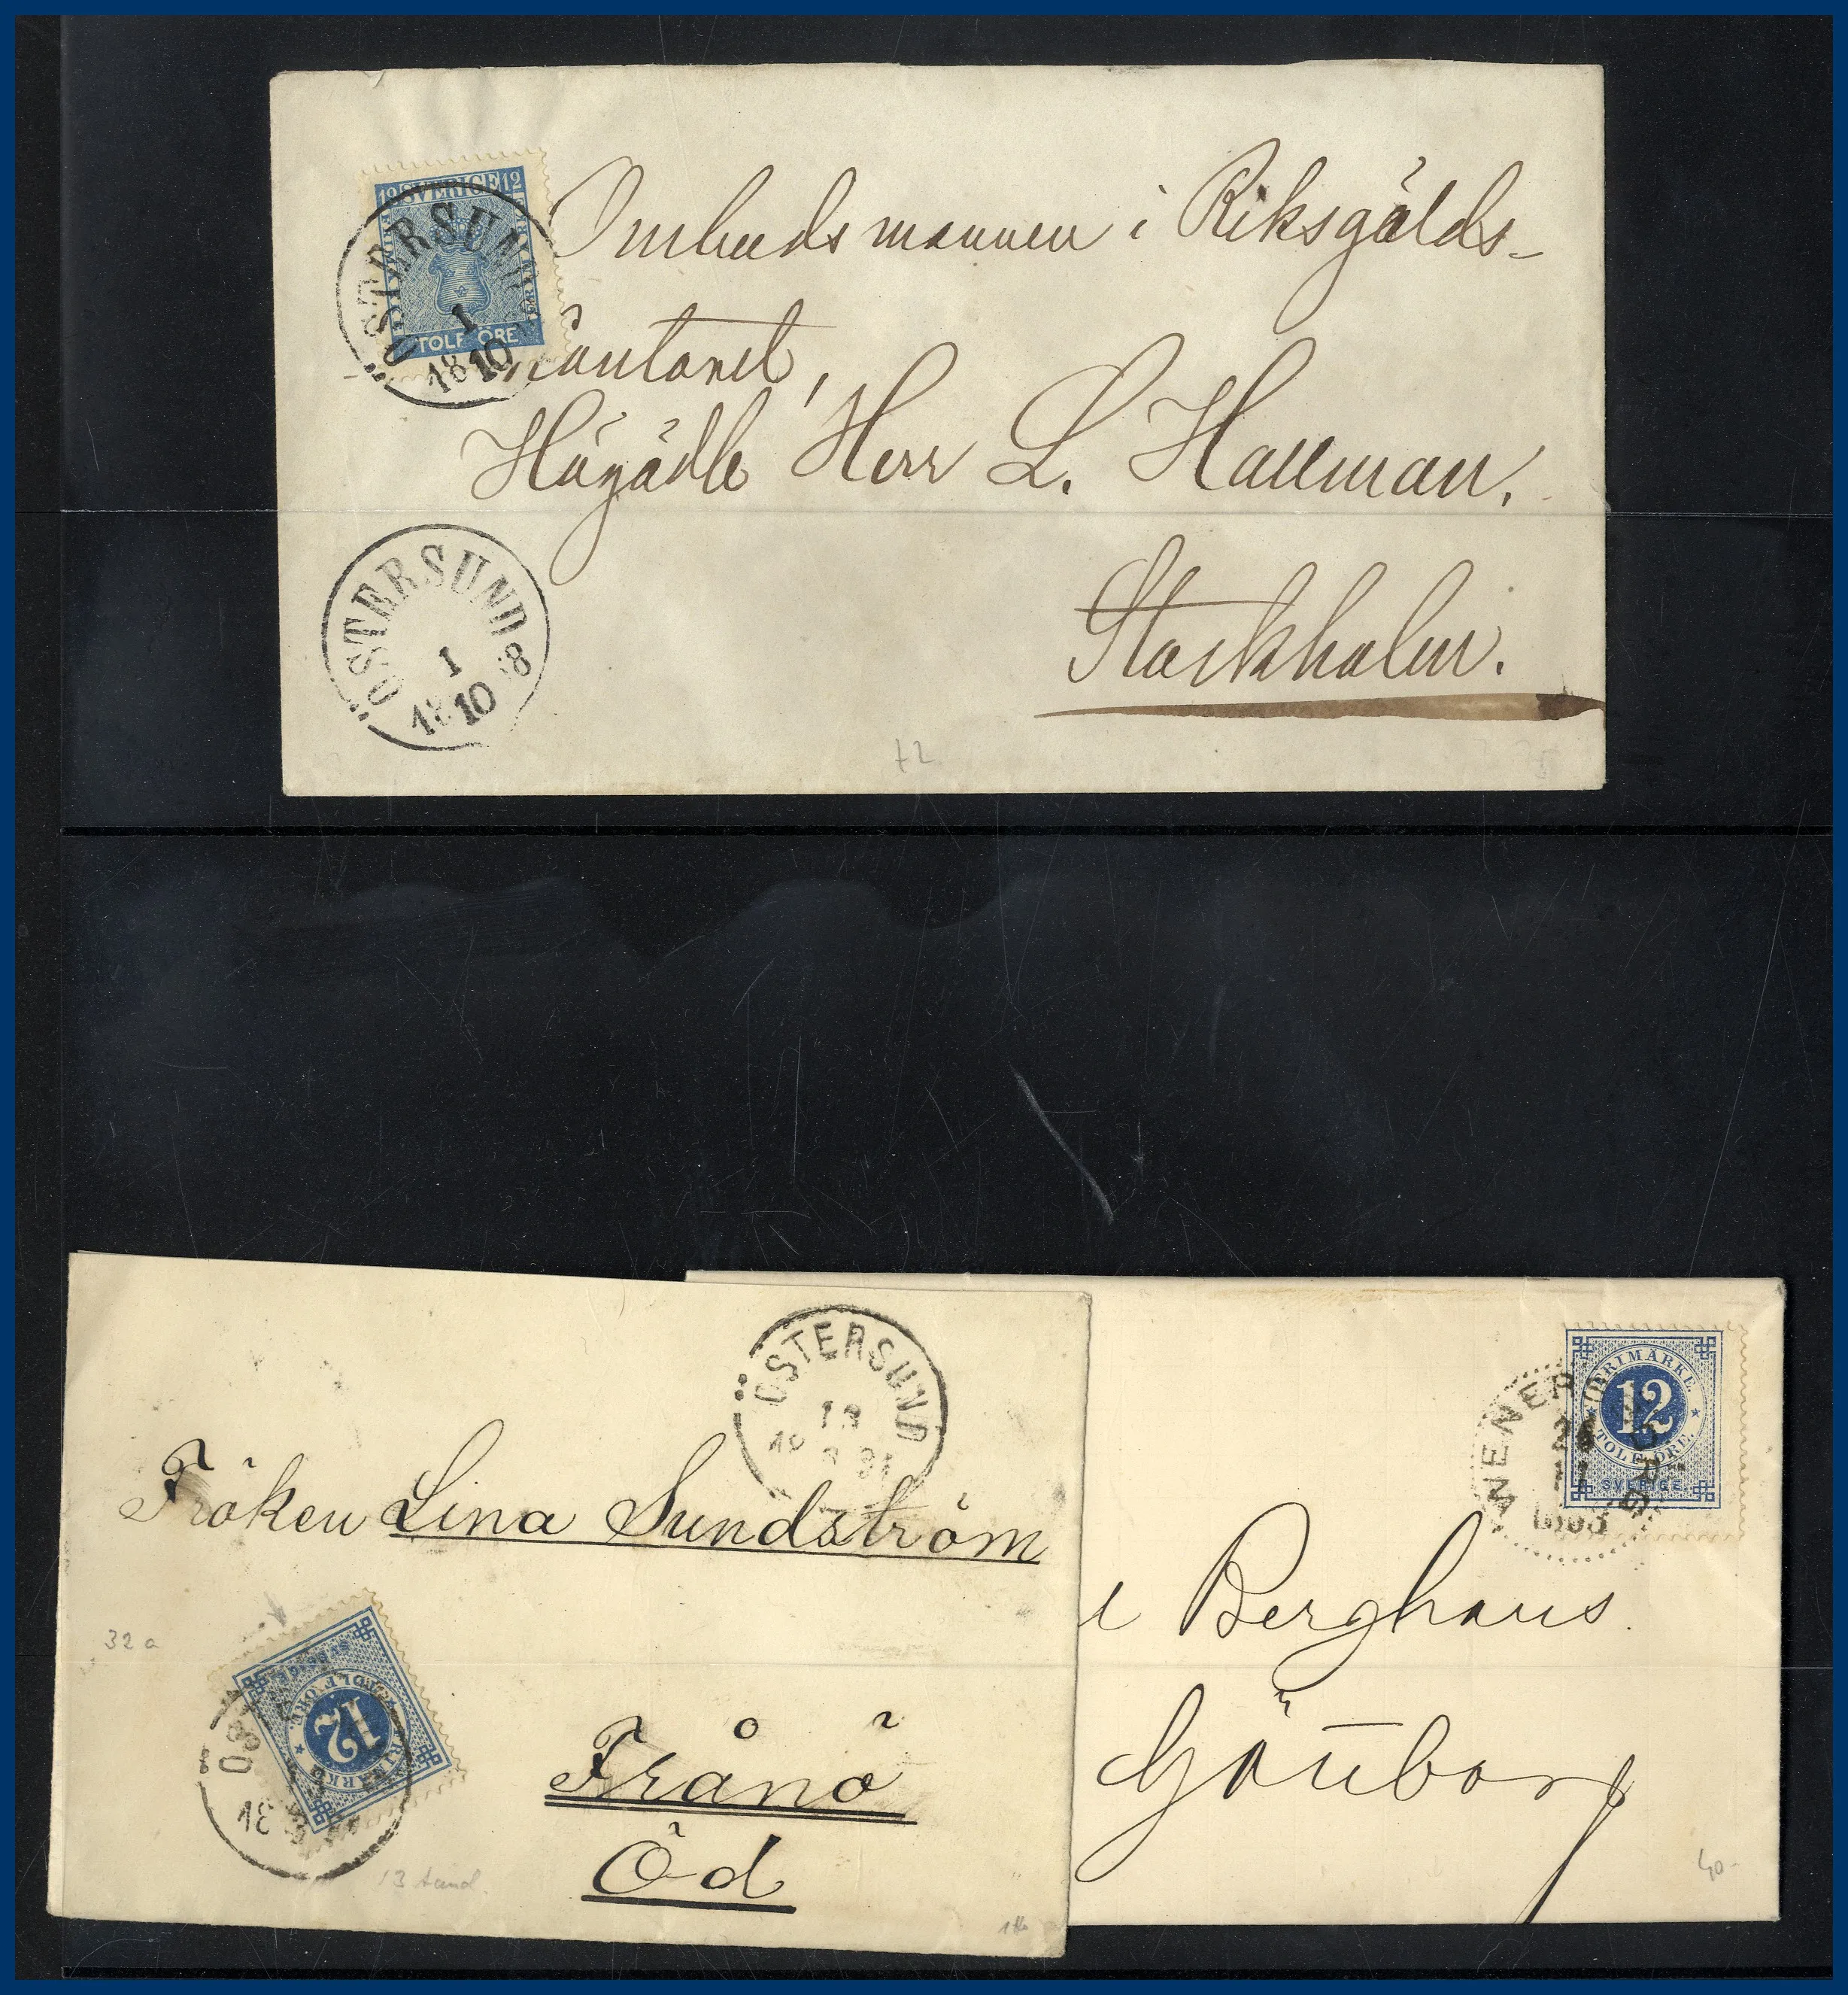 12 SVERIGE 12
TOLF ÖRE
ÖSTERSUND
1
10
18
Ombudsmannen i Riksgälds-
Contoret,
Högädle Herr L. Hallman.
Stockholm.
ÖSTERSUND
1
10
18 8
72
ÖSTERSUND
13
18 91
Fröken Lina Sundström
32 a
12
TOLF ÖRE
FRIMÄRKE
SVERIGE
18
13 tand.
Frånö
Öd
FRIMÄRKE
12
TOLF ÖRE.
SVERIGE
WENERSBORG
Berghaus.
Göteborg
40-